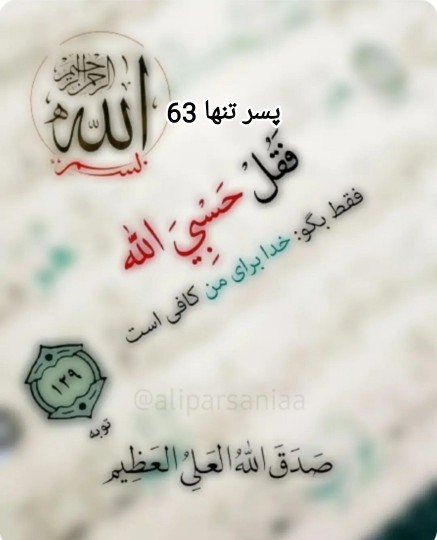 بسم الله الرحمن الرحيم
پسر تنها 63
فَقُلْ حَسْبِيَ الله
فقط بگو: خدا برای من کافی است
۱۲۹
توبه
@aliparsaniaa
صَدَقَ اللهُ العَلِيُ العَظِيم